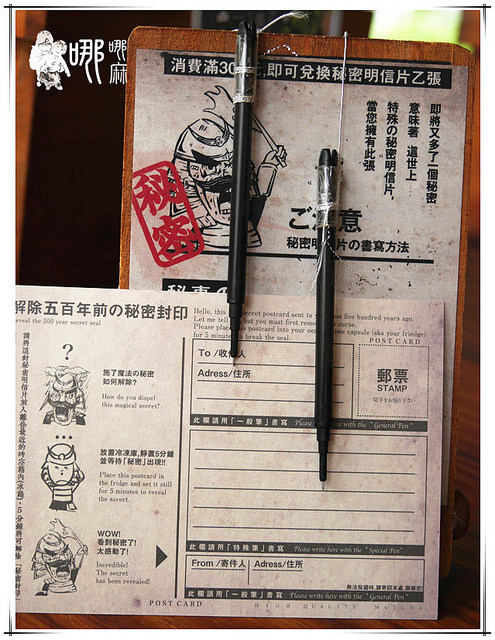 哪哪麻
消費滿30,即可兌換秘密明信片乙張
即將又多了一個秘密
意味著 這世上
特殊の秘密明信片,
當您擁有此張
秘密
意
秘密明 片の書寫方法
解除五百年前の秘密封印
reveal the 500 year secret seal
Hello, this ecret postcard sent to five hundred years ago.
Let me tell but you must first remo curse.
Please place postcard into your ne time capsule (aka your friedge)
for 5 minutes break the seal.
POST CARD
To /收 人
Adress/住所
郵票
STAMP
?
施了魔法の秘密
如何解除?
How do you dispel
this magical secret?
此欄請用「一般筆」書寫 Please write here with the "General Pen"
放置冷凍庫,靜置5分鐘
並等待「秘密」出現!!
Place this postcard in
the fridge and set it still
for 5 minutes to reveal
the secret.
WOW!
看到秘密了!
太感動了!
Incredible!
The secret
has been revealed!
此欄請用「特殊筆」書寫 Please write here with the "Special Pen"
From /寄件人
Adress/住所
無法投遞時,請寄回本處,謝謝您!
此欄請用「一般筆」書寫 Please write here with the "General Pen"
POST CARD
HIGH QUALITY MATCHA